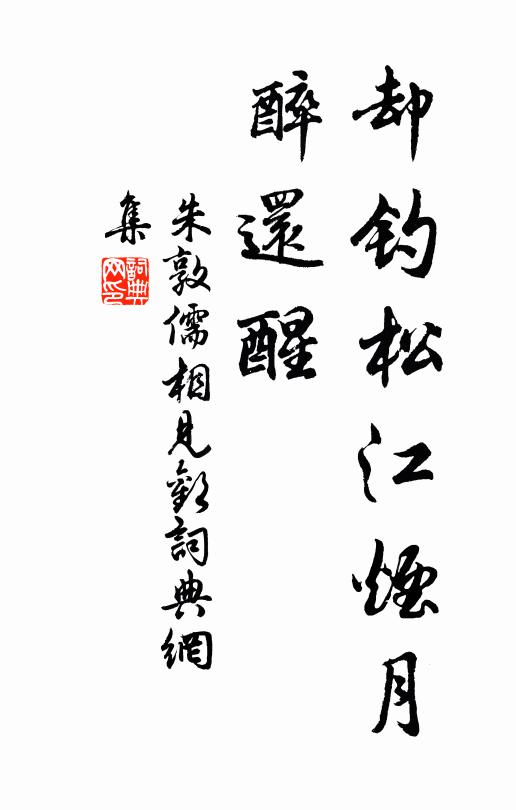 却钓松江煙月
醉還醒
朱敦儒相見歡詞典網
集
詞典
网印